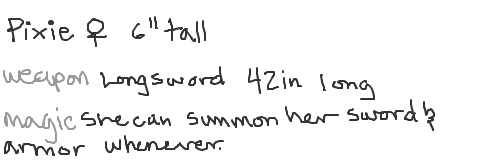 Pixie ♀ 6" tall
weapon Longsword 42in long
magic she can summon her sword &
armor whenever.